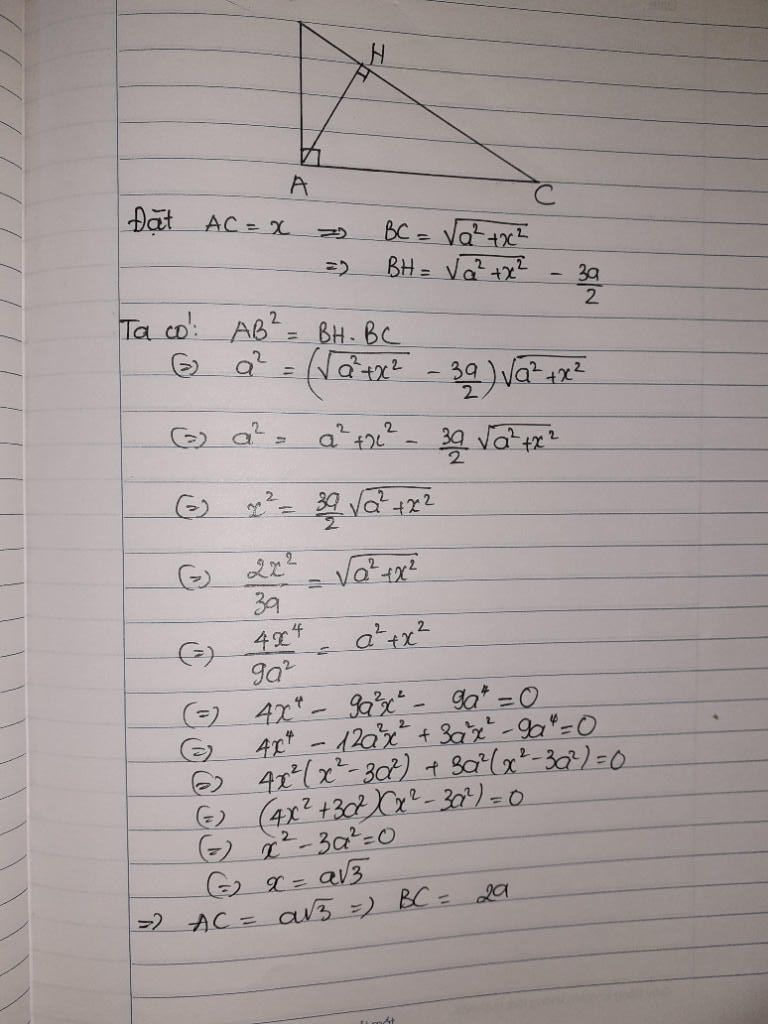 H
A
C
Đặt AC = x => BC = √(a²+x²)
=> BH = √(a²+x²) - 3a/2
Ta có: AB² = BH.BC
(=) a² = (√(a²+x²) - 3a/2)√(a²+x²)
(=) a² = a²+x² - 3a/2 √(a²+x²)
(=) x² = 3a/2 √(a²+x²)
(=) 2x²/3a = √(a²+x²)
(=) 4x⁴/9a² = a²+x²
(=) 4x⁴ - 9a²x² - 9a⁴ = 0
(=) 4x⁴ - 12a²x² + 3a²x² - 9a⁴ = 0
(=) 4x²(x² - 3a²) + 3a²(x² - 3a²) = 0
(=) (4x² + 3a²)(x² - 3a²) = 0
(=) x² - 3a² = 0
(=) x = a√3
=> AC = a√3 => BC = 2a